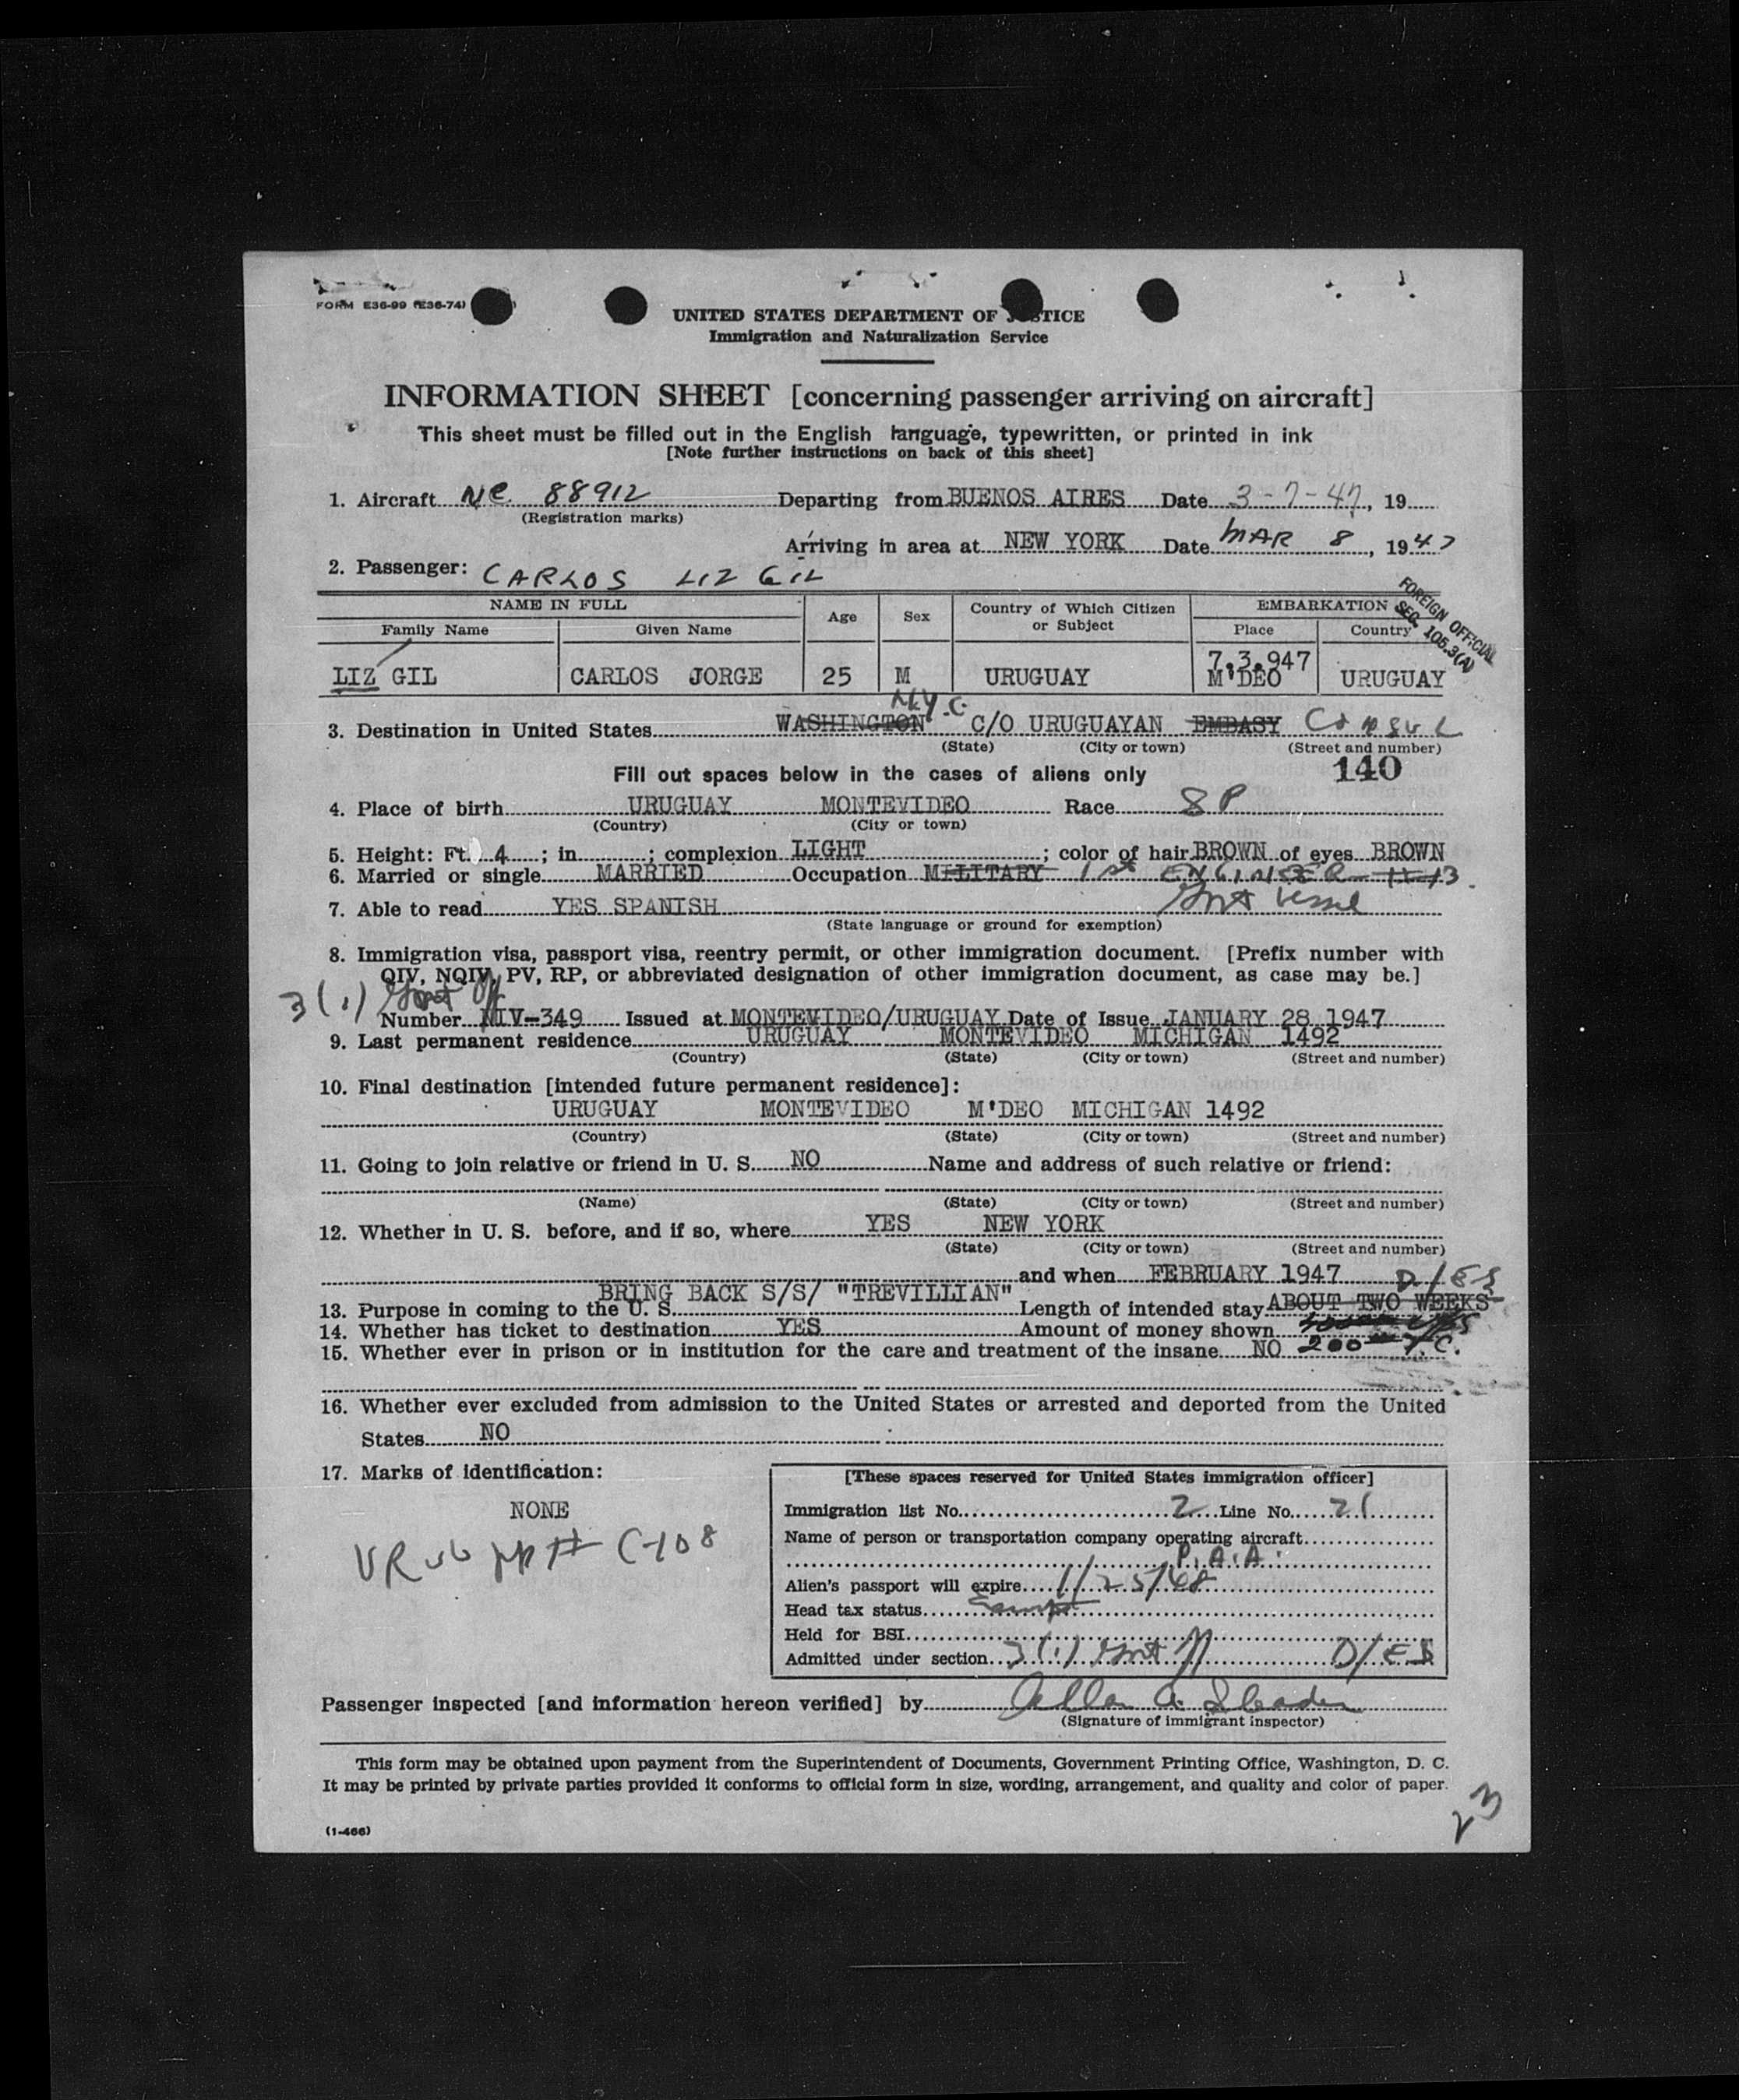 FORM E36-99 (E36-74)
UNITED STATES DEPARTMENT OF JUSTICE
Immigration and Naturalization Service
INFORMATION SHEET [concerning passenger arriving on aircraft]
This sheet must be filled out in the English language, typewritten, or printed in ink
[Note further instructions on back of this sheet]
1. Aircraft NC. 88912 Departing from BUENOS AIRES Date 3-7-47, 19
(Registration marks)
Arriving in area at NEW YORK Date MAR 8, 1947
2. Passenger: CARLOS LIZ GIL
FOREIGN OFFICIAL
SEC. 105.3(A)
NAME IN FULL Age Sex Country of Which Citizen or Subject EMBARKATION
Family Name Given Name Place Country
7.3.947
LIZ GIL CARLOS JORGE 25 M URUGUAY M'DEO URUGUAY
N.Y.C.
3. Destination in United States WASHINGTON C/O URUGUAYAN EMBASY CONSUL
(State) (City or town) (Street and number)
Fill out spaces below in the cases of aliens only 140
4. Place of birth URUGUAY MONTEVIDEO Race SP
(Country) (City or town)
5. Height: Ft. 4; in ; complexion LIGHT; color of hair BROWN of eyes BROWN
6. Married or single MARRIED Occupation MILITARY 1st ENGINEER
7. Able to read YES SPANISH Govt Vessel
(State language or ground for exemption)
8. Immigration visa, passport visa, reentry permit, or other immigration document. [Prefix number with
QIV, NQIV, PV, RP, or abbreviated designation of other immigration document, as case may be.]
3(1) Govt Off
Number NIV-349 Issued at MONTEVIDEO/URUGUAY Date of Issue JANUARY 28 1947
9. Last permanent residence URUGUAY MONTEVIDEO MICHIGAN 1492
(Country) (State) (City or town) (Street and number)
10. Final destination [intended future permanent residence]:
URUGUAY MONTEVIDEO M'DEO MICHIGAN 1492
(Country) (State) (City or town) (Street and number)
11. Going to join relative or friend in U. S. NO Name and address of such relative or friend:
(Name) (State) (City or town) (Street and number)
12. Whether in U. S. before, and if so, where YES NEW YORK
(State) (City or town) (Street and number)
and when FEBRUARY 1947 D/ES
13. Purpose in coming to the U. S. BRING BACK S/S/ "TREVILLIAN" Length of intended stay ABOUT TWO WEEKS
14. Whether has ticket to destination YES Amount of money shown
15. Whether ever in prison or in institution for the care and treatment of the insane NO 200 T.C.
16. Whether ever excluded from admission to the United States or arrested and deported from the United
States NO
17. Marks of identification:
NONE
C-108
[These spaces reserved for United States immigration officer]
Immigration list No. 2 Line No. 21
Name of person or transportation company operating aircraft
P.A.A.
Alien's passport will expire 1/25/48
Head tax status Exempt
Held for BSI
Admitted under section 3(1) Govt Off D/ES
Passenger inspected [and information hereon verified] by
(Signature of immigrant inspector)
This form may be obtained upon payment from the Superintendent of Documents, Government Printing Office, Washington, D. C.
It may be printed by private parties provided it conforms to official form in size, wording, arrangement, and quality and color of paper.
23
(1-466)